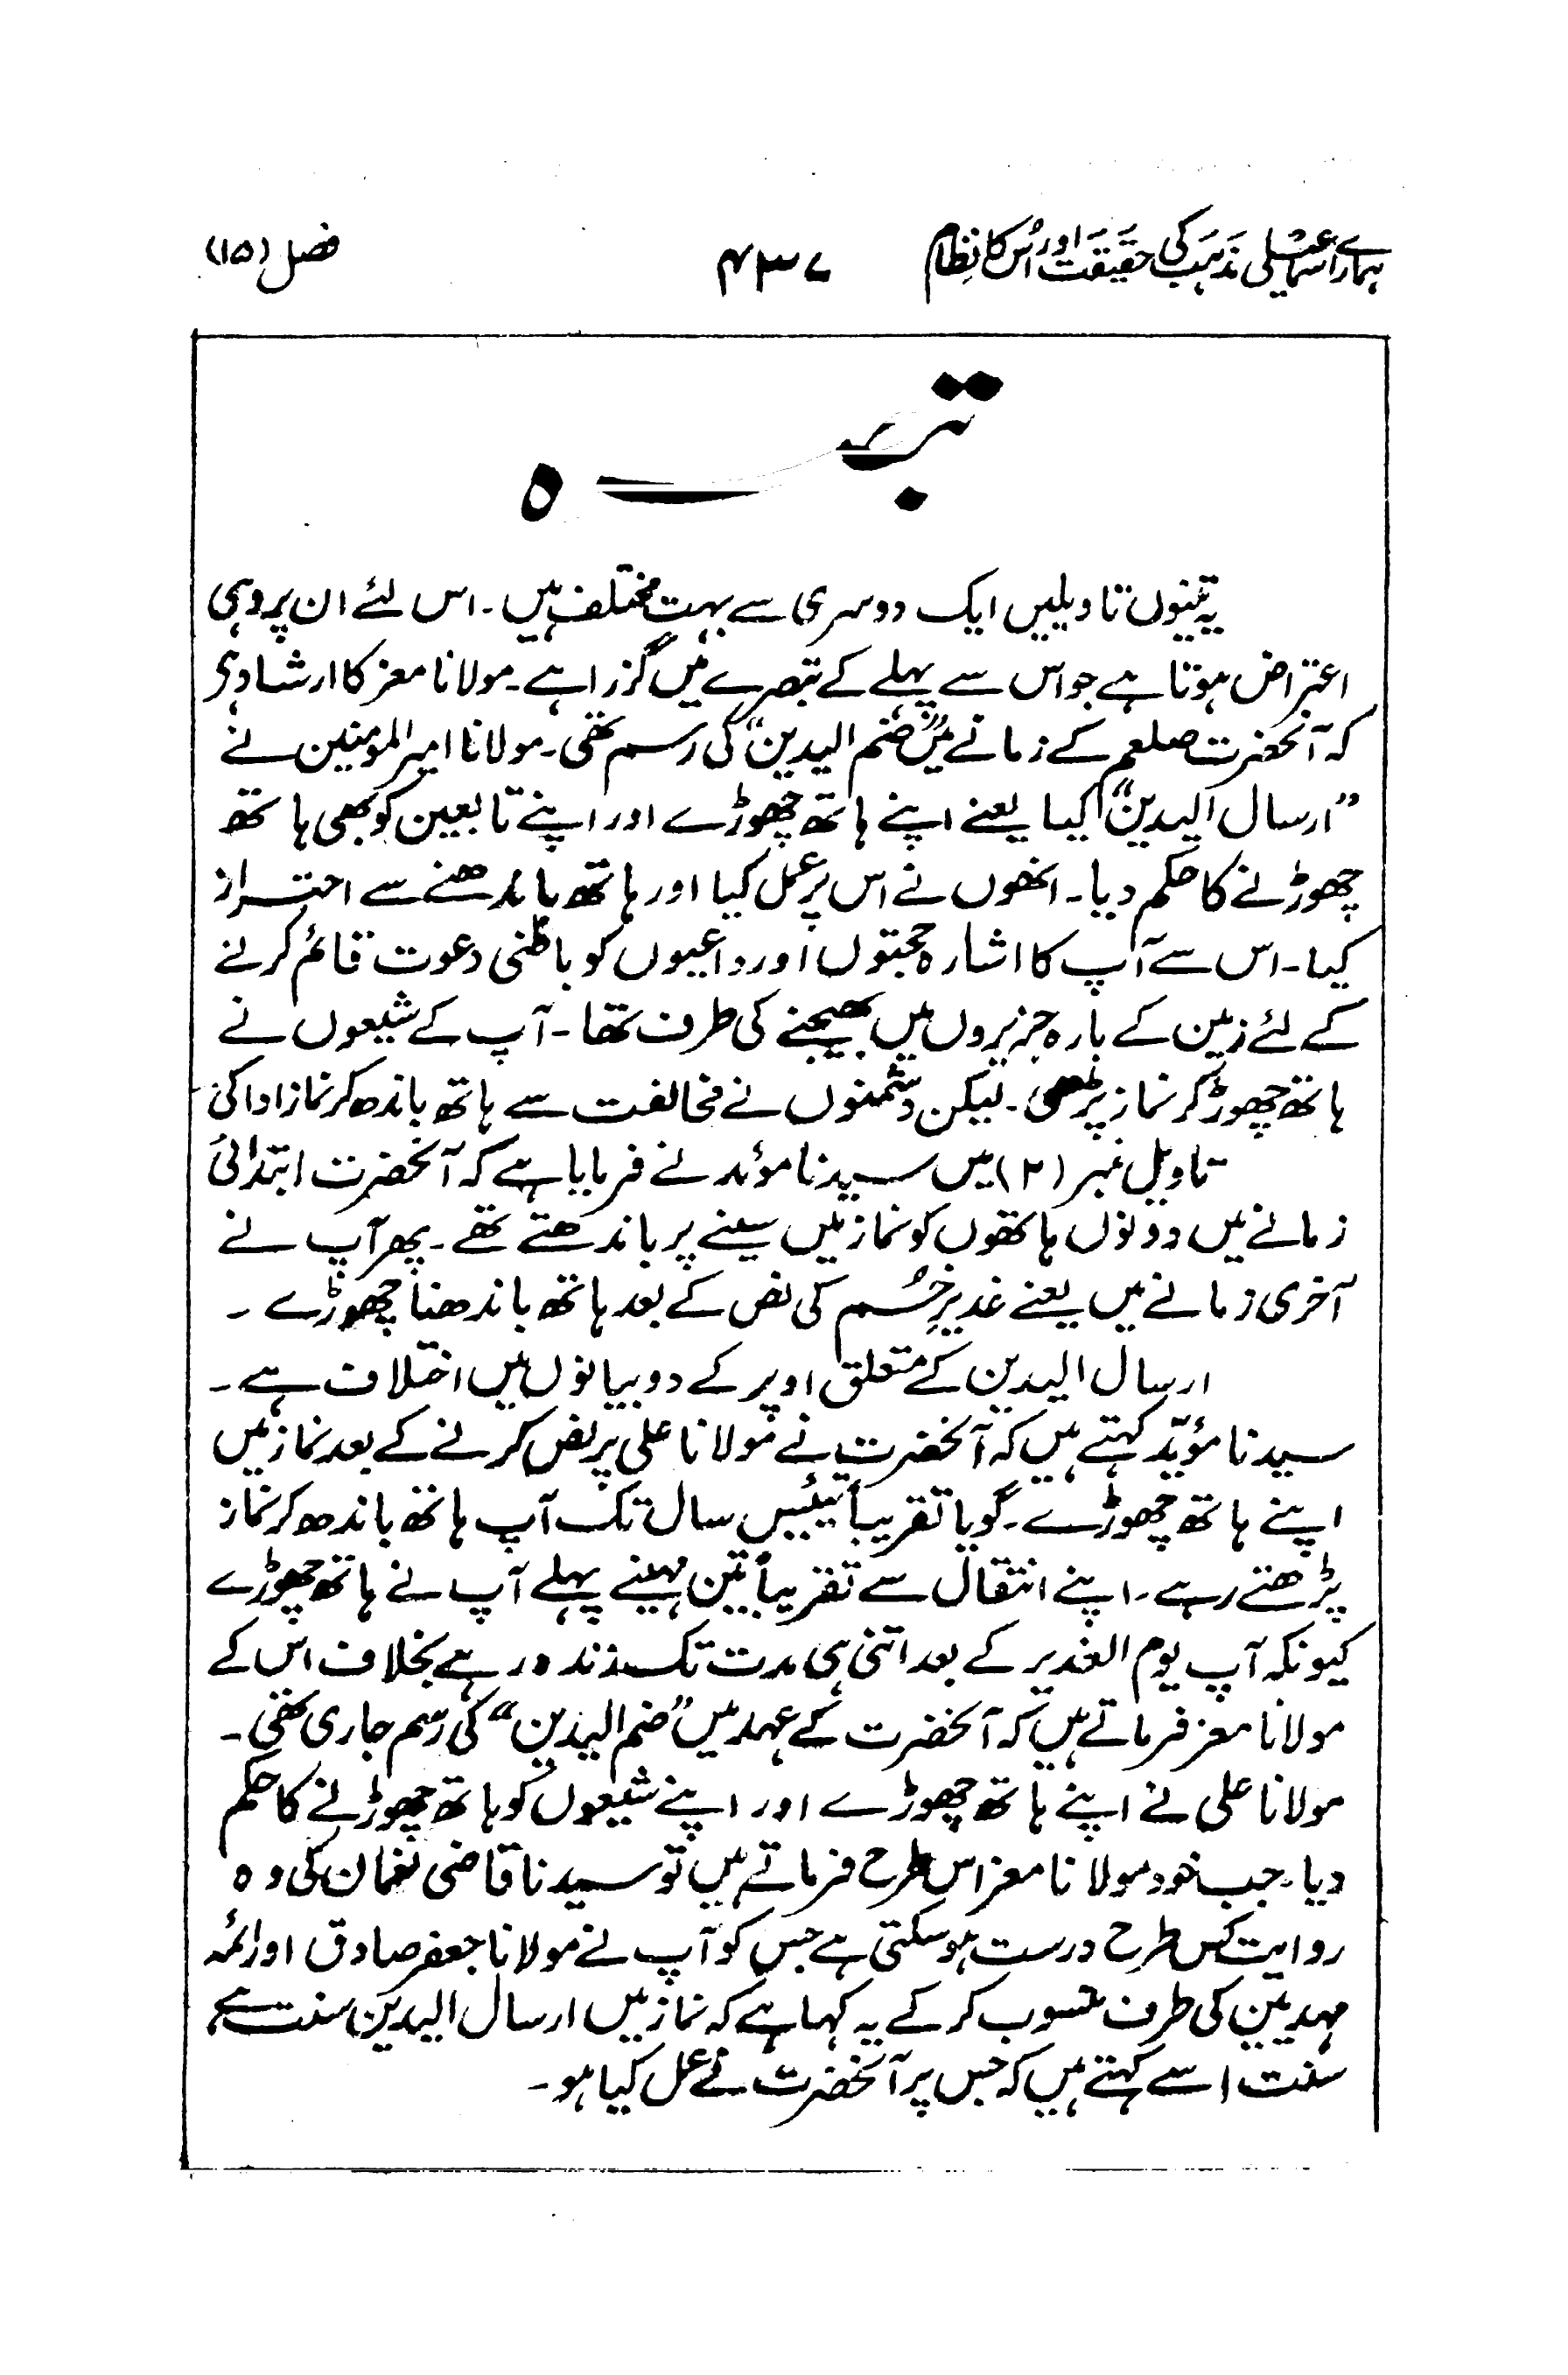 ہمارے اسماعیلی مذہب کی حقیقت اور اُس کا نظام ۴۳۷ فصل (۱۵)
تبصرہ
یہ تینوں تاویلیں ایک دوسری سے بہت مختلف ہیں۔ اس لئے ان پر وہی
اعتراض ہوتا ہے جو اس سے پہلے کے تبصرے میں گزرا ہے۔ مولانا معز کا ارشاد ہی
کہ آنحضرت صلعم کے زمانے میں ”ضم الیدین“ کی رسم تھی۔ مولانا امیر المومنین نے
”ارسال الیدین“ کیا یعنے اپنے ہاتھ چھوڑے اور اپنے تابعین کو بھی ہاتھ
چھوڑنے کا حکم دیا۔ انھوں نے اس پر عمل کیا اور ہاتھ باندھنے سے احتراز
کیا۔ اس سے آپ کا اشارہ حجتوں اور داعیوں کو باطنی دعوت قائم کرنے
کے لئے زمین کے بارہ جزیروں میں بھیجنے کی طرف تھا۔ آپ کے شیعوں نے
ہاتھ چھوڑ کر نماز پڑھی۔ لیکن دشمنوں نے مخالفت سے ہاتھ باندھ کر نماز ادا کی
تاویل نمبر (۲) میں سیدنا مؤید نے فرمایا ہے کہ آنحضرت ابتدائی
زمانے میں دونوں ہاتھوں کو نماز میں سینے پر باندھتے تھے۔ پھر آپ نے
آخری زمانے میں یعنے غدیرِ خُم کی نص کے بعد ہاتھ باندھنا چھوڑے۔
ارسال الیدین کے متعلق اوپر کے دو بیانوں میں اختلاف ہے۔
سیدنا مؤیّد کہتے ہیں کہ آنحضرت نے مولانا علی پر نص کرنے کے بعد نماز میں
اپنے ہاتھ چھوڑے۔ گویا تقریباً تیئیس سال تک آپ ہاتھ باندھ کر نماز
پڑھتے رہے۔ اپنے انتقال سے تقریباً تین مہینے پہلے آپ نے ہاتھ چھوڑے
کیونکہ آپ یوم الغدیر کے بعد اتنی ہی مدت تک زندہ رہے بخلاف اس کے
مولانا معز فرماتے ہیں کہ آنحضرت کے عہد میں ”ضم الیدین“ کی رسم جاری تھی۔
مولانا علی نے اپنے ہاتھ چھوڑے اور اپنے شیعوں کو ہاتھ چھوڑنے کا حکم
دیا۔ جب خود مولانا معز اس طرح فرماتے ہیں تو سیدنا قاضی نعمان کی وہ
روایت کس طرح درست ہو سکتی ہے جس کو آپ نے مولانا جعفر صادق اور ائمہ
مہدیین کی طرف منسوب کر کے یہ کہا ہے کہ نماز میں ارسال الیدین سنت ہے
سنت اسے کہتے ہیں کہ جس پر آنحضرت نے عمل کیا ہو۔